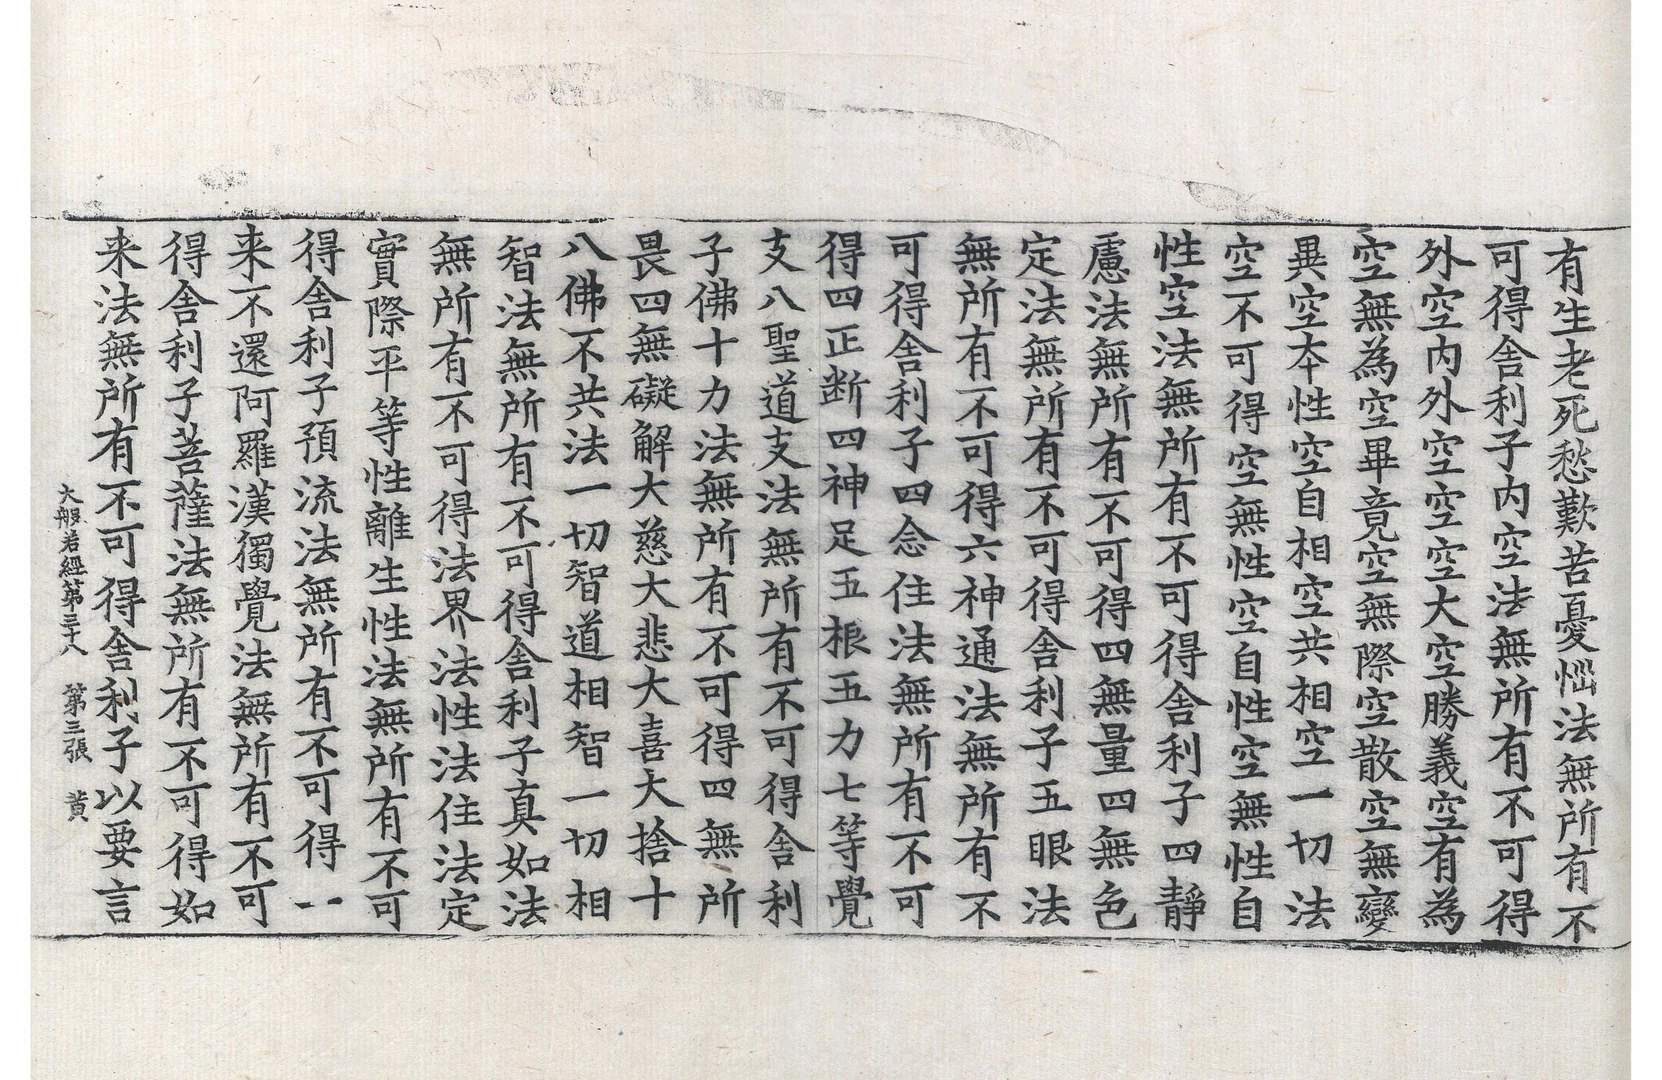 有生老死愁歎苦憂惱法無所有不
可得舍利子内空法無所有不可得
外空内外空空空大空勝義空有為
空無為空畢竟空無際空散空無變
異空本性空自相空共相空一切法
空不可得空無性空自性空無性自
性空法無所有不可得舍利子四靜
慮法無所有不可得四無量四無色
定法無所有不可得舍利子五眼法
無所有不可得六神通法無所有不
可得舍利子四念住法無所有不可
得四正断四神足五根五力七等覺
支八聖道支法無所有不可得舍利
子佛十力法無所有不可得四無所
畏四無礙解大慈大悲大喜大捨十
八佛不共法一切智道相智一切相
智法無所有不可得舍利子真如法
無所有不可得法界法性法住法定
實際平等性離生性法無所有不可
得舍利子預流法無所有不可得一
来不還阿羅漢獨覺法無所有不可
得舍利子菩薩法無所有不可得如
来法無所有不可得舍利子以要言
大般若經第三十八 第三張 黄